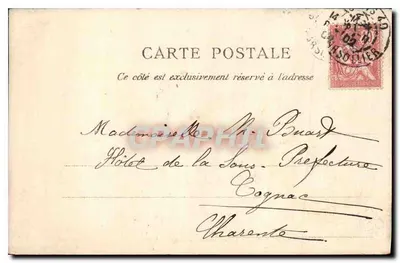 CARTE POSTALE
Ce côté est exclusivement réservé à l'adresse
Mademoiselle Th. Buard
Hôtel de la Sous-Préfecture
Cognac
Charente